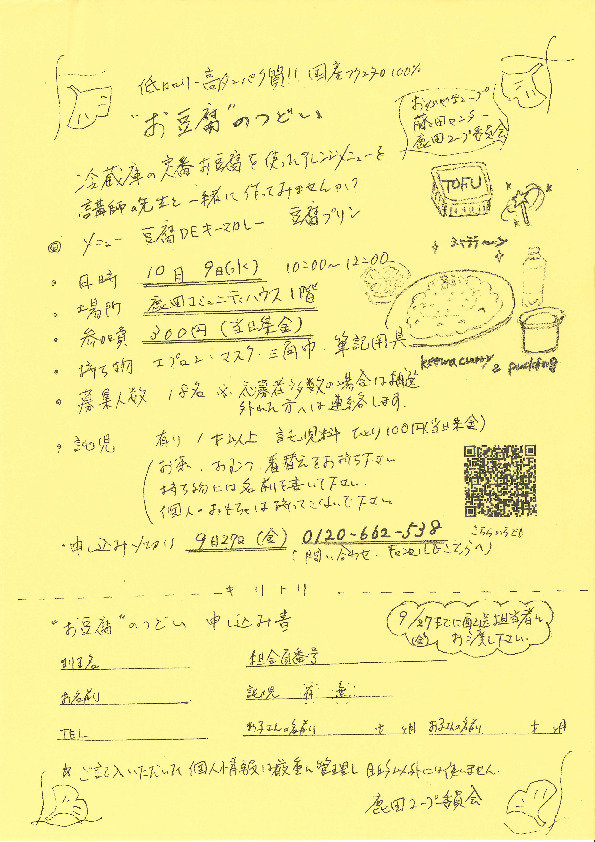 低カロリー高タンパク質!! 国産フクユタカ100%
"お豆腐"のつどい
おかやまコープ
藤田センター
鹿田コープ委員会
冷蔵庫の定番お豆腐を使ったアレンジメニューを
講師の先生と一緒に作ってみませんか?
TOFU
◎ メニュー 豆腐DEキーマカレー 豆腐プリン
・日時 10月 9日(水) 10:00〜12:00
・場所 鹿田コミュニティハウス1階
・参加費 300円(当日集金)
・持ち物 エプロン・マスク・三角巾・筆記用具
keema curry & pudding
・募集人数 18名 ※応募者多数の場合は抽選
外れた方へは連絡します。
・託児 有り 1才以上 託児料 ひとり100円(当日集金)
お茶、おむつ、着替えをお持ち下さい
持ち物には名前を書いて下さい
個人のおもちゃは持ってこないで下さい
・申し込み〆切り 9月27日(金) 0120-662-538
こちらからも
(問い合わせ、こちらへ)
キリトリ
"お豆腐"のつどい 申し込み書
9/27(金)までに配送担当者に
お渡し下さい。
組合員番号
お名前
託児 有 無
TEL
お子さんの名前 才 ヶ月 お子さんの名前 才 ヶ月
※ご記入いただいた個人情報は厳重に管理し目的以外には使いません。
鹿田コープ委員会